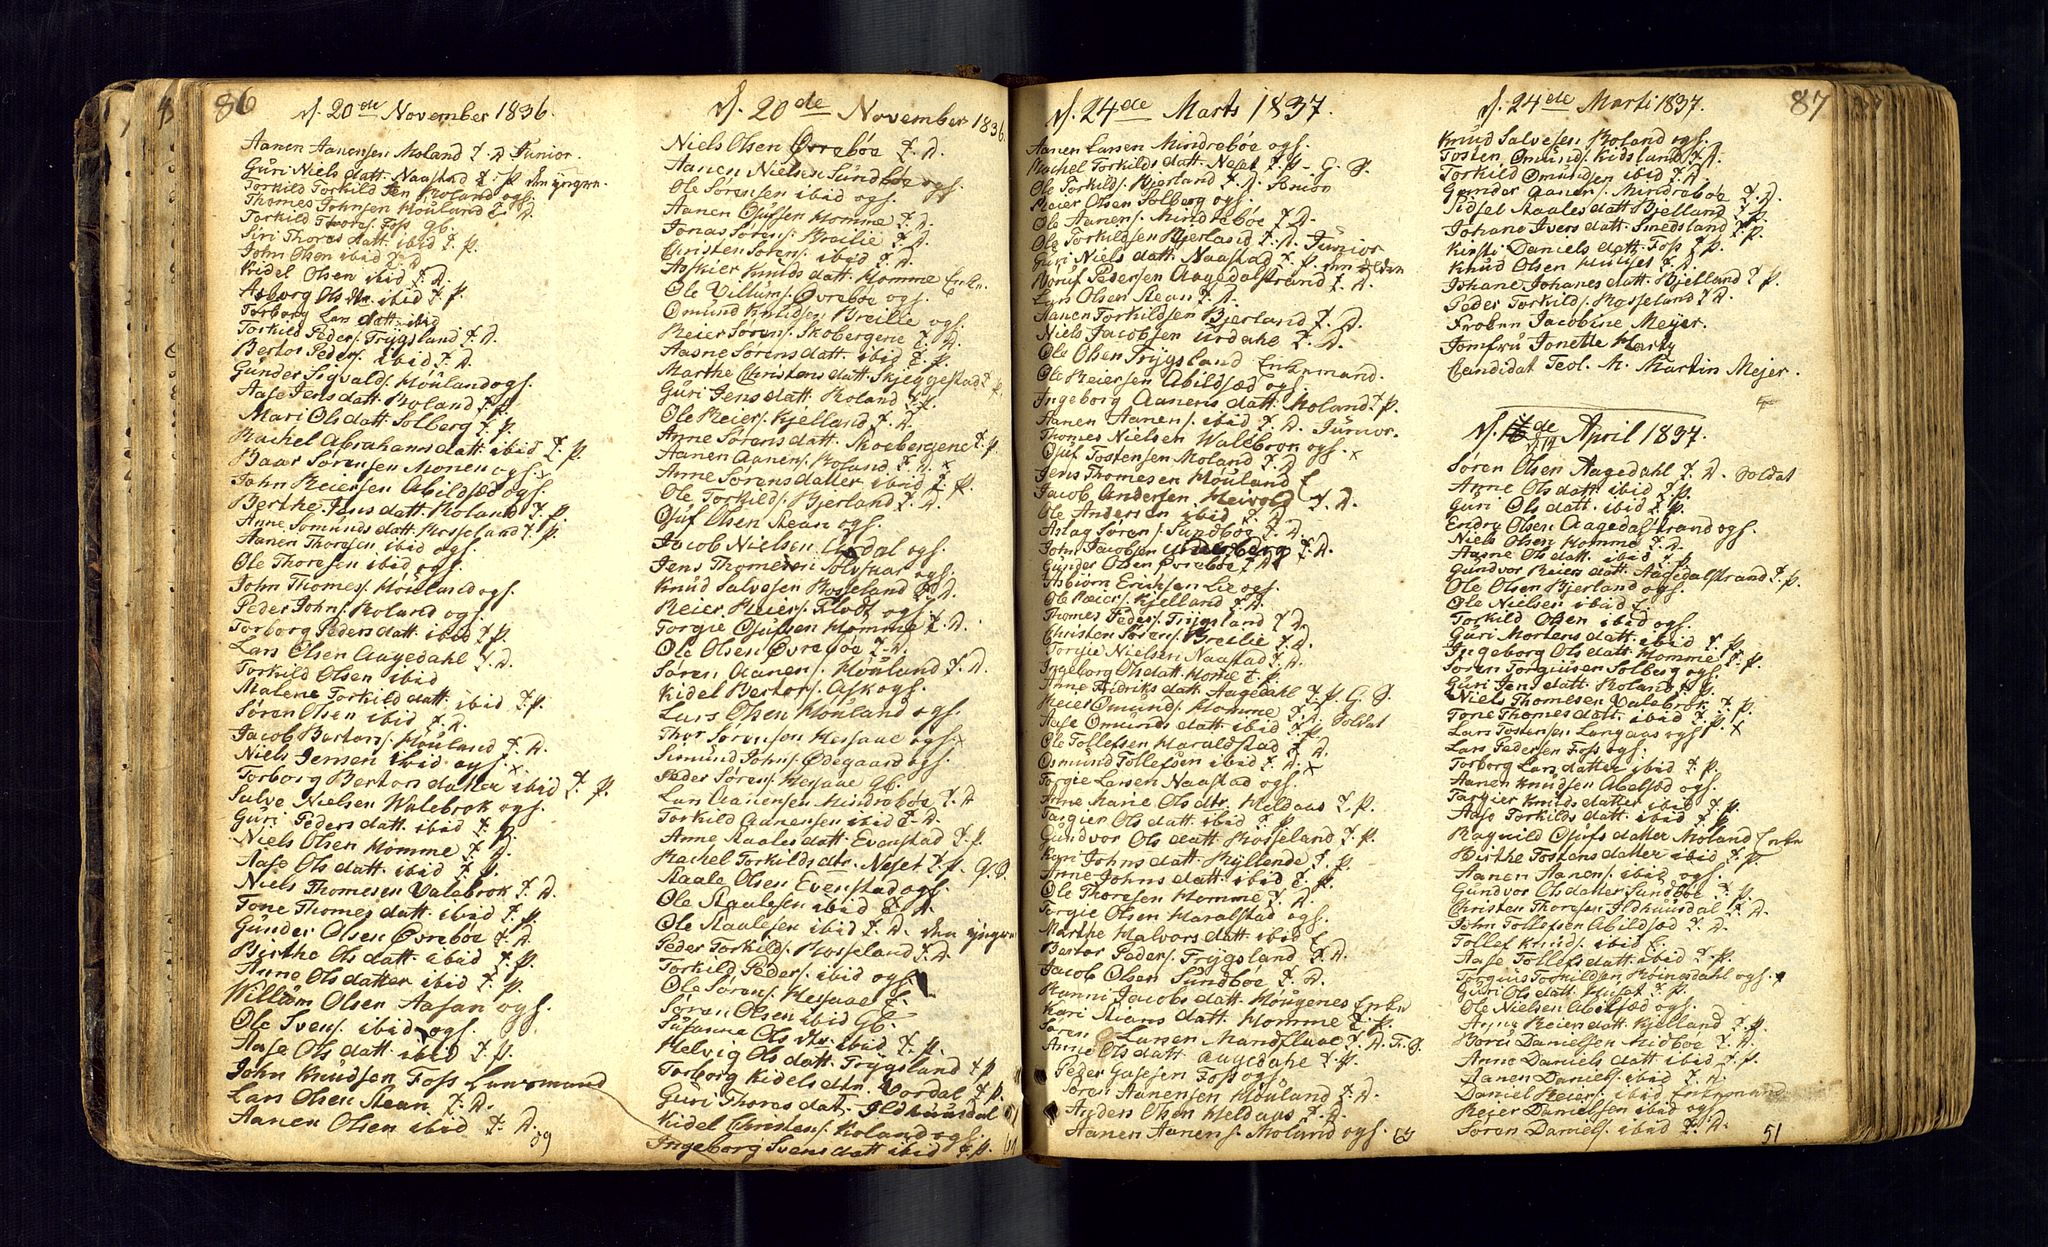 86
d. 20de November 1836.
Aanen Aanensen Moland T. D. Junior.
Guri Niels datt. Naastad T. P. den yngre.
Torkild Torkildsen Roland ogs.
Thomes Johnsen Houland T. D.
Torkild Thores. Foss gb.
Siri Thores datt. ibid T. P.
John Olsen ibid T. D.
Kidel Olsen ibid T. D.
Asborg Ols dtr. ibid T. P.
Torborg Lars datt. ibid
Torkild Peders. Trygsland T. D.
Bertor Peders. ibid T. D.
Gunder Sigvalds. Houland ogs.
Aase Jens datt. Roland T. P.
Mari Ols datt. Solberg T. P.
Rachel Abrahams datt. ibid T. P.
Baar Sørensen Monen ogs.
John Reiersen Abildsæd ogs.
Berthe Jens datt. Roland T. P.
Anne Somunds datt. Rosseland T. P.
Aanen Thoresen ibid ogs.
Ole Thoresen ibid ogs.
John Thomes. Houland ogs.
Peder Johns. Roland ogs.
Torborg Peders datt. ibid T. P.
Lars Olsen Aagedahl T. D.
Torkild Olsen ibid
Malene Torkild datt. ibid T. P.
Søren Olsen ibid T. D.
Jacob Bertors. Houland T. D.
Niels Jensen ibid ogs. x
Torborg Bertors datter ibid T. P.
Salve Nielsen Walebrok ogs.
Guri Peders datt. ibid T. P.
Niels Olsen Homme T. D.
Aase Ols datt. ibid T. P.
Niels Thomesen Valebrok T. D.
Tone Thomes datt. ibid T. P.
Gunder Olsen Øvrebøe T. D.
Birthe Ols datt. ibid T. P.
Anne Ols datter ibid T. P.
Willum Olsen Aasan ogs.
Ole Svens. ibid ogs.
Aase Ols datt. ibid T. P.
John Knudsen Foss Lensmand
Lars Olsen Stean T. D.
Aanen Olsen ibid T. D.
d. 20de November 1836.
Niels Olsen Øvrebøe T. D.
Aanen Nielsen Sundbøe ogs.
Ole Sørensen ibid ogs.
Aanen Ojufsen Homme T. D.
Jonas Sørens. Breilie T. D.
Christen Sørens. ibid T. D.
Askier Knuds datt. Homme Enke.
Ole Villums. Øvrebøe ogs.
Omund Knudsen Breilie ogs.
Reier Sørens. Skobergene T. D.
Aasne Sørens datt. ibid T. P.
Marthe Christens datt. Skjeggestad T. P.
Guri Jens datt. Roland T. P.
Ole Reiers. Kjelland T. D.
Anne Sørens datt. Skoebergene T. P.
Aanen Aanens. Roland T. D. x
Anne Sørens datter ibid T. P.
Ole Torkilds. Bjerland T. D.
Ojuf Olsen Stean ogs.
Jacob Nielsen Urdal ogs.
Jens Thomesen Solvsaa ogs.
Knud Salvesen Rosseland T. D.
Reier Reiers. Flodt ogs.
Torgie Ojufsen Homme T. D.
Ole Olsen Øvrebøe T. D.
Søren Aanens. Houland T. D.
Kidel Bertors. Ask ogs.
Lars Olsen Houland ogs.
Thor Sørensen Hessaae ogs. x
Simund Johns. Ødegaard ogs.
Peder Sørens. Hessaae gb.
Lars Aanensen Mindrebøe T. D.
Torkild Aanensen ibid T. D.
Anne Staales datt. Evenstad T. P.
Rachel Torkilds dtr. Neset T. P. G. G.
Staale Olsen Evenstad ogs.
Ole Staalesen ibid T. D.
Ole Staalesen ibid T. D. den yngre
Peder Torkilds. Rosseland T. D.
Torkild Peders. ibid ogs.
Ole Sørens. Hessaae T.
Søren Olsen ibid Gb.
Susanne Ols dtr. ibid T. P.
Helvig Ols datt. Trygsland T. P.
Torborg Kidels dtr. Vordal T. P.
Guri Thores dat. Ildhuusdal
Kidel Christens. Roland ogs.
Ingeborg Svens datt ibid T. P.
d. 24de Marts 1837.
Aanen Larsen Mindrebøe ogs.
Rachel Torkilds datt. Neset T. P. G. G.
Ole Torkilds. Bjerland T. D. Senior
Reier Olsen Solberg ogs.
Ole Aanens. Mindrebøe T. D.
Ole Torkildsen Bjerland T. D. Junior
Guri Niels datt. Naastad T. P. den ældre
Roruf Pedersen Aagedalstrand T. D.
Lars Olsen Stean T. D.
Aanen Torkildsen Bjerland T. D.
Niels Jacobsen Urdahl T. D.
Ole Olsen Trygsland Enkemand.
Ole Reiersen Abildsæd ogs.
Ingeborg Aanens datt. Moland T. P.
Aanen Aanens. ibid T. D. Junior.
Thomes Nielsen Walebron ogs.
Ojuf Tostensen Moland T. D. x
Jens Thomesen Houland T.
Jacob Andersen Heivold T. D.
Ole Andersen ibid T. D.
Aslag Søren s. Sundbøe T. D.
John Jacobsen Underberg T. D.
Gunder Olsen Øvrebøe T. D.
Asbjørn Ericksen Lie ogs.
Ole Reiers. Kjelland T. D.
Thomes Peders. Trygsland T. D.
Christen Sørens. Breilie T. D.
Torgie Nielsen Naastad T. D.
Ingeborg Ols datt. Homme T. P.
Anne Fridriks datt. Aagedahl T. P. G. G.
Reier Omunds. Homme T. D. Soldat
Aase Omunds datt. ibid T. P.
Ole Tollefsen Haraldstad T. D.
Osmund Tollefsen ibid T. D. x
Torgie Larsen Naastad ogs.
Anne Marie Ols dtr. Heldaas T. P.
Targier Ols datt. ibid T. P.
Gundvor Ols datt Rosseland T. P.
Kari Johns datt. Kyllende T. P.
Anne Johns datt. ibid T. P.
Ole Thoresen Homme T. D.
Torgie Olsen Haralstad ogs.
Marthe Halvors datt. ibid T.
Bertor Peders. Trygsland T. D.
Jacob Olsen Sundbøe T. D.
Ranni Jacobs datt. Hougenes Enke
Kari Stians datt. Homme T. P.
Søren Larsen Mandfluae T. D. F. G.
Anne Ols datt Aagedahl T. P.
Peder Gusesen Foss ogs.
Søren Aanensen Houland T. D.
Anders Olsen Heldaas T. D.
Aanen Aanens. Moland ogs.
d. 24de Marti 1837.
87
Knud Salvesen Roland ogs.
Tosten Omunds. Kidsland T. D.
Torkild Omundsen ibid T. D.
Gunder Aanens. Mindrebøe T. D.
Sidsel Staales datt Bjelland T. P.
Johane Ivers datt Smedsland T. P.
Kirsti Daniels datt. Foss T. P.
Knud Olsen Hunset T. D.
Johane Johanes datt. Bjelland T. P.
Peder Torkilds. Rosseland T. D.
Froken Jacobine Meyer.
Jomfru Jonette Harty
Candidat Teol. M. Martin Mejer.
d. de April 1837.
Søren Olsen Aagedahl T. D. Soldat
Anne Ols datt ibid T. P.
Guri Ols datt. ibid T. P.
Endre Olsen Aagedalstrand ogs.
Niels Olsen Homme T. D.
Aasne Ols datt. ibid T. P.
Gundvor Reiers datt. Aagedalstrand T. P.
Ole Olsen Bjerland ogs.
Ole Nielsen ibid T.
Torkild Olsen ibid ogs.
Guri Mortens datt. ibid T. P.
Ingeborg Ols datt. Homme T. P.
Søren Torgiusen Solberg ogs.
Guri Jens datt. Roland T. P.
Niels Thomesen Valebrok T. D.
Tone Thomes datt. ibid T. P.
Lars Tostensen Langaas ogs. x
Lars Pedersen Foss ogs.
Torborg Lars datter ibid T. P.
Aanen Knudsen Abelsæd ogs.
Targier Knuds datter ibid T. P.
Aase Torkilds datt. ibid T. P.
Ragnild Ojufs datter Moland Enke
Birthe Tostens datter ibid T. P.
Aanen Aanens. ibid ogs.
Gundvor Ols datter Sundbøe T. P.
Christen Thoresen Ildhuusdal T. D.
John Tollefsen Abildsæd T. D.
Tollef Knuds. ibid T.
Aase Tollefs datt. ibid T. P.
Torgius Torkildsen Røinesdahl ogs.
Guri Ols datt. Huset T. P.
Ole Nielsen Abelsæd ogs.
Anne Reiers datt. Kjelland T. P.
Boru Danielsen Midbøe T. D.
Anne Daniels datt. ibid T. P.
Aanen Daniels. ibid T. D.
Daniel Reiers. ibid Enkemand
Reier Danielsen ibid ogs.
Søren Daniels. ibid T. D.
51